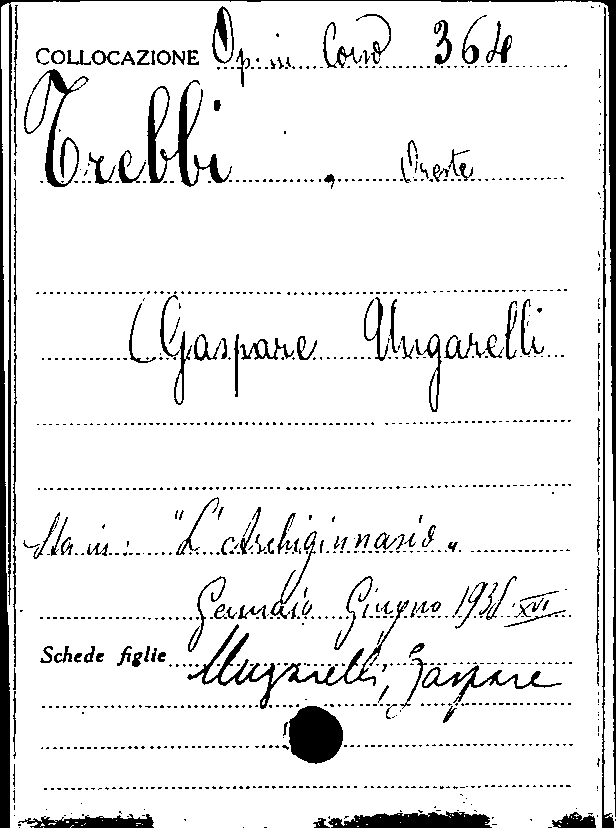 COLLOCAZIONE Op. in Corso 364
Trebbi, Oreste
(Gaspare Ungarelli
Sta in: "L'Archiginnasio„
Gennaio Giugno 1938 XVI
Schede figlie Ungarelli, Gaspare